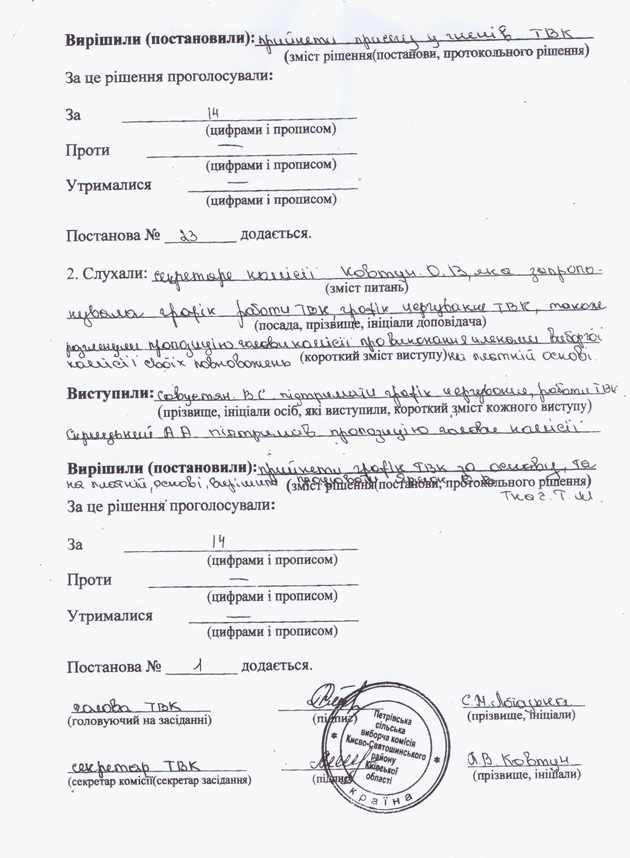 Вирішили (постановили): прийняти присягу у членів ТВК
(зміст рішення(постанови, протокольного рішення)
За це рішення проголосували:
За 14
(цифрами і прописом)
Проти —
(цифрами і прописом)
Утрималися —
(цифрами і прописом)
Постанова № 23 додається.
2. Слухали: секретаря комісії Ковтун. О.В, яка запропо-
(зміст питань)
нувала графік роботи ТВК, графік чергування ТВК, також
(посада, прізвище, ініціали доповідача)
розглянули пропозицію голови комісії про виконання членами виборчої
комісії своїх повноважень (короткий зміст виступу) на платній основі.
Виступили: В С підтримати графік чергування, роботи ТВК
(прізвище, ініціали осіб, які виступили, короткий зміст кожного виступу)
А А. підтримав пропозицію голови комісії
Вирішили (постановили): прийняти графік ТВК за основу, та
на платній основі, вирішили працювати
(зміст рішення(постанови, протокольного рішення)
Ткач. Т. М
За це рішення проголосували:
За 14
(цифрами і прописом)
Проти —
(цифрами і прописом)
Утрималися —
(цифрами і прописом)
Постанова № 1 додається.
голова ТВК С.М.
(головуючий на засіданні) (підпис) (прізвище, ініціали)
секретар ТВК О.В Ковтун
(секретар комісії(секретар засідання) (підпис) (прізвище, ініціали)
Петрівська
сільська
виборча комісія
Києво-Святошинського
району
Київської
області
країна